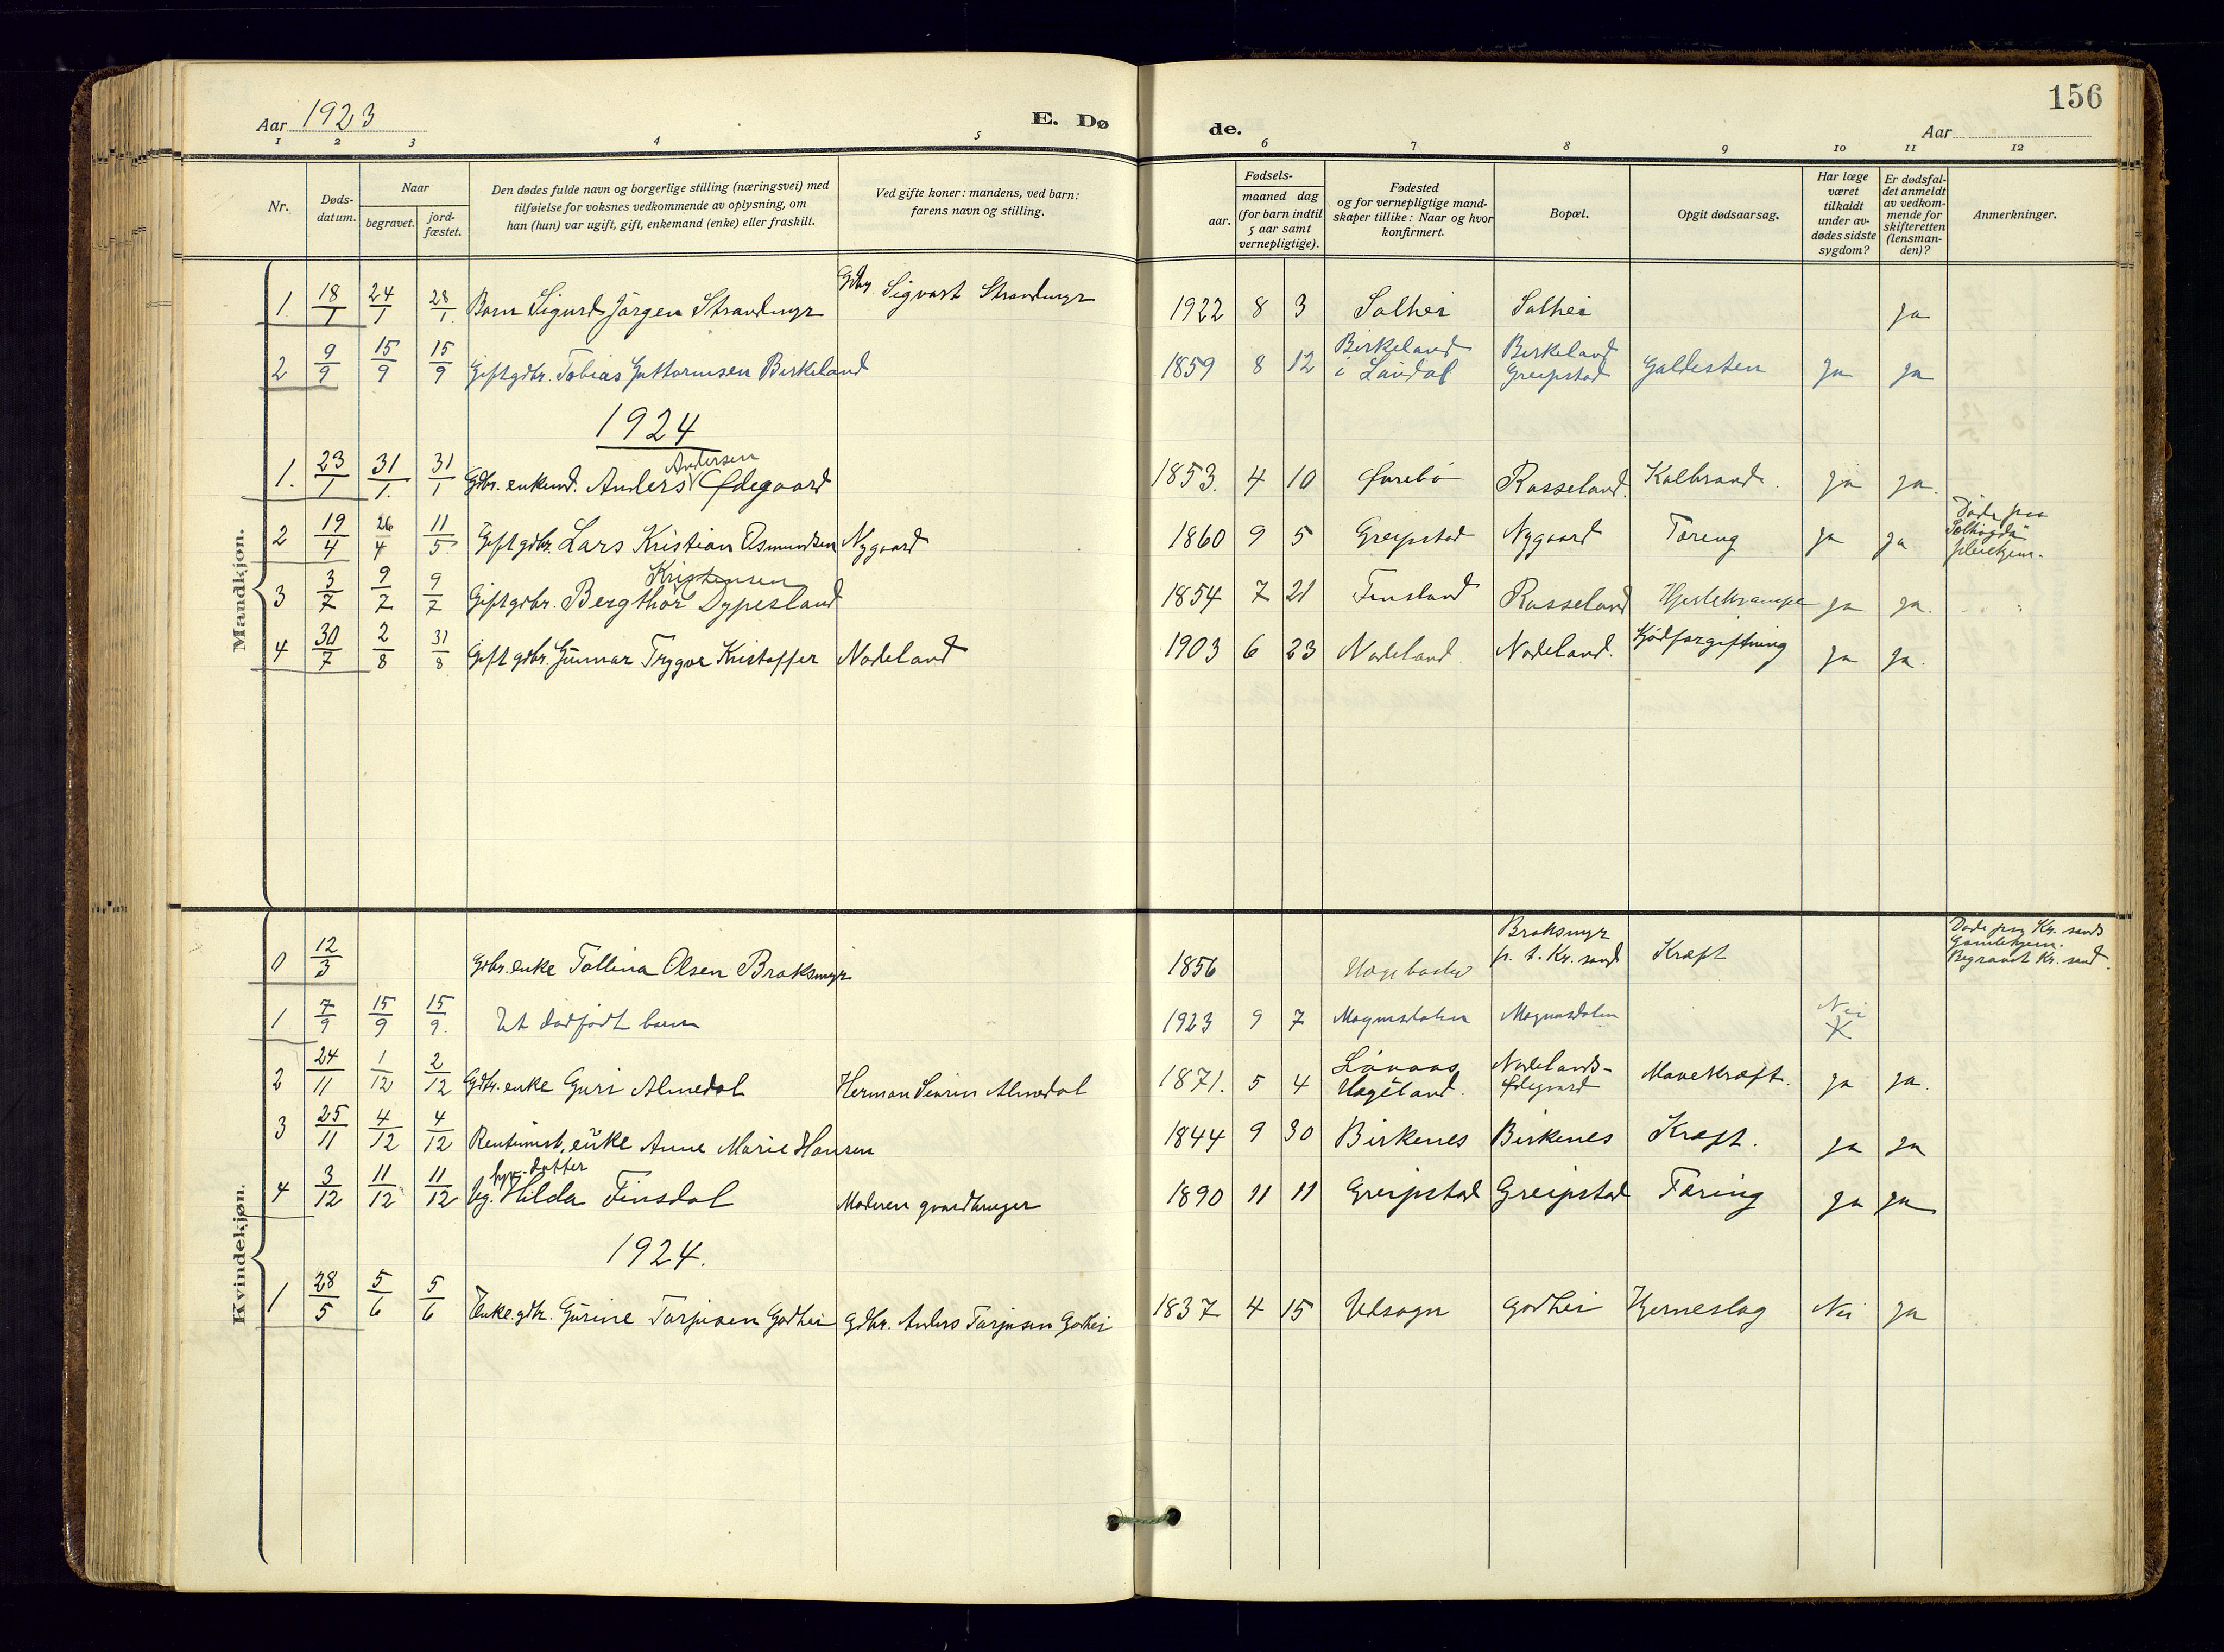 Aar 1923
E. Dø
de.
156
Aar
1 2 3 4 5 6 7 8 9 10 11 12
Nr.
Døds-
datum.
Naar
begravet.
jord-
fæstet.
Den dødes fulde navn og borgerlige stilling (næringsvei) med
tilføielse for voksnes vedkommende av oplysning, om
han (hun) var ugift, gift, enkemand (enke) eller fraskill.
Ved gifte koner: mandens, ved barn:
farens navn og stilling.
aar.
Fødsels-
maaned dag
(for barn indtil
5 aar samt
vernepligtige).
Fødested
og for vernepligtige mand-
skaper tillike: Naar og hvor
konfirmert.
Bopæl.
Opgit dødsaarsag.
Har læge
været
tilkaldt
under av-
dødes sidste
sygdom?
Er dødsfal-
det anmeldt
av vedkom-
mende for
skifteretten
(lensman-
den)?
Anmerkninger.
Mandkjøn.
1 18/1 24/1 28/1. Barn Sigurd Jørgen Strandmyr Gdbr. Sigvart Strandmyr 1922 8 3 Solhei Solhei ja
2 9/9 15/9 15/9 Gift gdbr. Tobias Guttormsen Birkeland 1859 8 12 Birkeland i Laudal Birkeland Greipstad Galdesten ja ja
1924
1. 23/1 31/1. 31/1 Gdbr. enkemd. Anders Andersen Ødegaard 1853. 4 10 Øvrebø Rosseland. Kolbrand. ja ja.
2 19/4 26/4 11/5 Gift gdbr. Lars Kristian Osmundsen Nygaard 1860 9 5 Greipstad Nygaard Tæring ja ja Døde paa
pleiehjem.
3 3/7 9/7 9/7 Gift gdbr. Bergthor Kristensen Dypesland 1854 7 21 Finsland Rosseland Hjertekrampe ja ja.
4 30/7 2/8 31/8 Gift gdbr. Gunnar Trygve Kristoffer Nodeland 1903 6 23 Nodeland. Nodeland. Kjødforgiftning ja ja.
Kvindekjøn.
0 12/3 Gdbr. enke Tollina Olsen Broksmyr 1856 Broksmyr p. t. Kr. sand Kræft Døde paa Kr. sands
Gamlehjem.
Begravet Kr. sand.
1 7/9 15/9 15/9. Et dødfødt barn 1923 9 7 Magnusdalen Magnusdalen Nei
2 24/11 1/12 2/12 Gdbr. enke Guri Almedal Herman Severin Almedal 1871. 5 4 Løvaas Hægeland. Nodelands- Ødegaard Mavekræft. ja ja.
3 25/11 4/12 4/12 Rentenist, enke Anne Marie Hansen 1844 9 30 Birkenes Birkenes Kræft. ja ja
4 3/12 11/12 11/12 Ug. datter Hilda Finsdal Moderen gaardbruger 1890 11 11 Greipstad Greipstad Tæring ja ja
1924.
1 28/5 5/6 5/6 Enke. gdbr. Gurine Tarjusen Godhei Gdbr. Anders Tarjusen Godhei 1837 4 15 Vdsogn Godhei Hjerneslag Nei ja